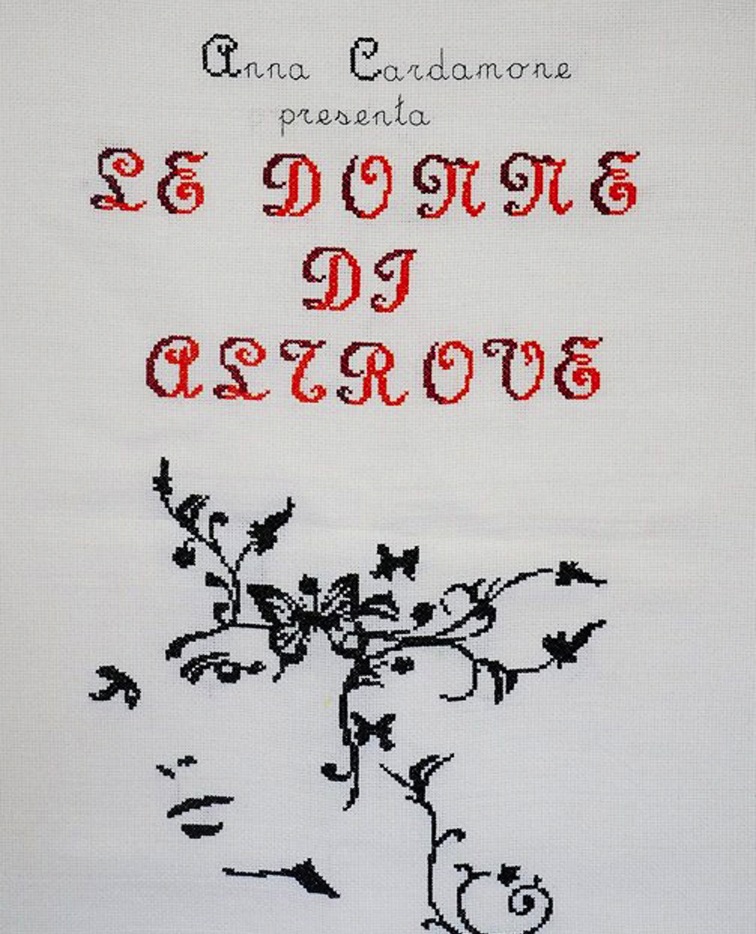 Anna Cardamone
presenta
LE DONNE
DI
ALTROVE